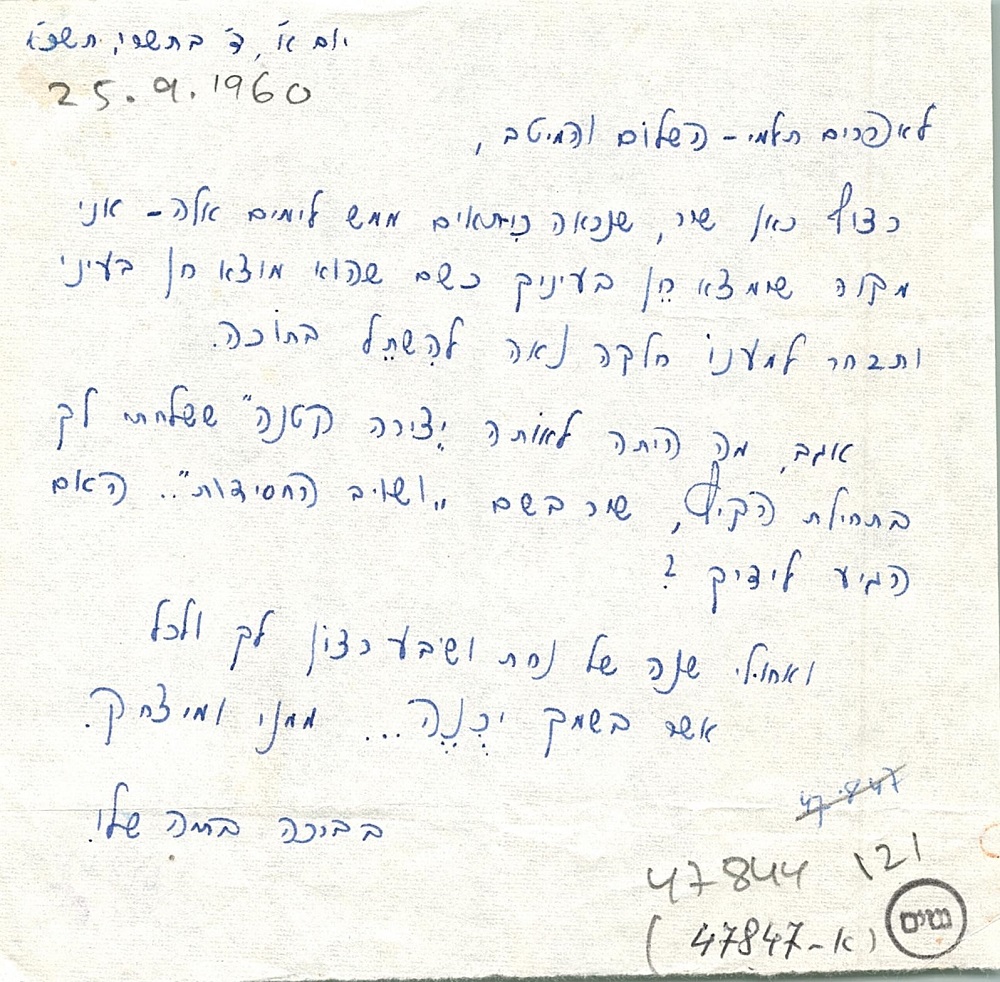 יום א', ד' בתשרי, תשכ"א
25.9.1960
לאפרים תלמי – השלום והמיטב,
רצוף כאן שיר, שנראה כִּמתאים ממש לימים אלה – אני
מקוה שימצא חֵן בעיניך כשם שהוא מוצא חן בעיני
ותבחר למענוֹ חלקה נאה לְהִשתֵל בתוֹכה.
אגב, מה היתה לאוֹתה יְצירה קטנה" ששלחתי לך
בתחילת הקיץ, שיר בשם "ושויב החסידות".. האם
הגיע לידיך ?
ואחולי שנה של נחת ושֹבע רצוֹן לך ולכל
אשר בשמך יְכֻנֶה... ממני ומיצחק.
בברכה בחמה שלי.
47847
47844 121
(47847-א)
גנזים